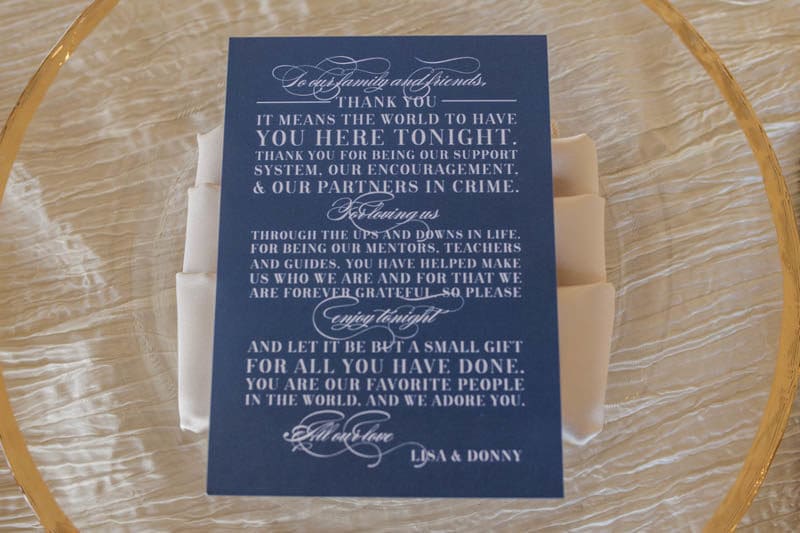 To our family and friends,
THANK YOU
IT MEANS THE WORLD TO HAVE
YOU HERE TONIGHT.
THANK YOU FOR BEING OUR SUPPORT
SYSTEM, OUR ENCOURAGEMENT,
& OUR PARTNERS IN CRIME.
For loving us
THROUGH THE UPS AND DOWNS IN LIFE.
FOR BEING OUR MENTORS, TEACHERS
AND GUIDES, YOU HAVE HELPED MAKE
US WHO WE ARE AND FOR THAT WE
ARE FOREVER GRATEFUL. SO PLEASE
enjoy tonight
AND LET IT BE BUT A SMALL GIFT
FOR ALL YOU HAVE DONE.
YOU ARE OUR FAVORITE PEOPLE
IN THE WORLD, AND WE ADORE YOU.
All our love
LISA & DONNY